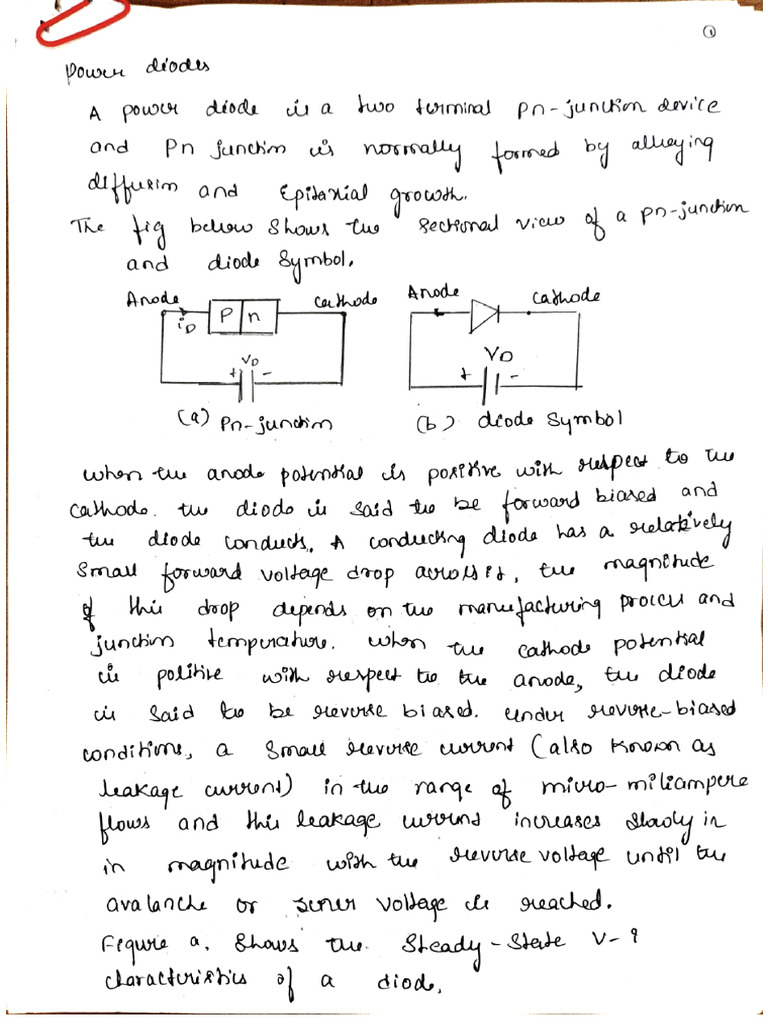 ①
Power diodes
A power diode is a two terminal pn-junction device
and Pn junction is normally formed by alloying
diffusion and Epitaxial growth.
The fig below shows the sectional view of a pn-junction
and diode symbol.
Anode Cathode Anode Cathode
iD P n
VD VD
+ - + -
(a) Pn-junction (b) diode symbol
when the anode potential is positive with respect to the
cathode. the diode is said to be forward biased and
the diode conducts. A conducting diode has a relatively
small forward voltage drop across it, the magnitude
of this drop depends on the manufacturing process and
junction temperature. when the cathode potential
is positive with respect to the anode, the diode
is said to be reverse biased. under reverse-biased
conditions, a small reverse current (also known as
leakage current) in the range of micro-miliampere
flows and this leakage current increases slowly in
in magnitude with the reverse voltage until the
avalanche or zener voltage is reached.
Figure a. shows the steady-state V-i
characteristics of a diode.